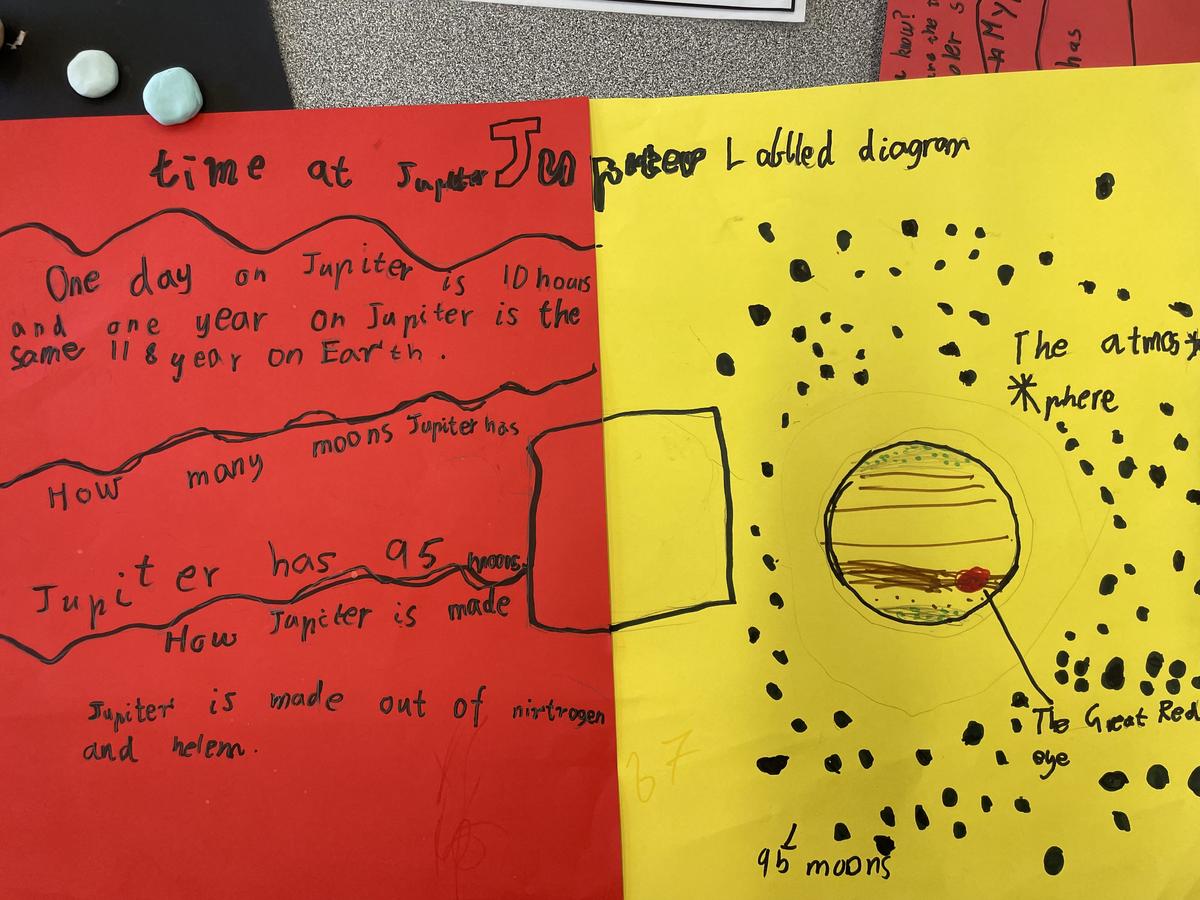 time at Jupiter
Jupiter
One day on Jupiter is 10 hours
and one year on Jupiter is the
same 11 8 year on Earth.
How many moons Jupiter has
Jupiter has 95 moons.
How Jupiter is made
Jupiter is made out of nirtrogen
and helem.
Lablled diagram
The atmos*
*phere
The Great Red
eye
95 moons
67
know?
are the
oler s
My
has